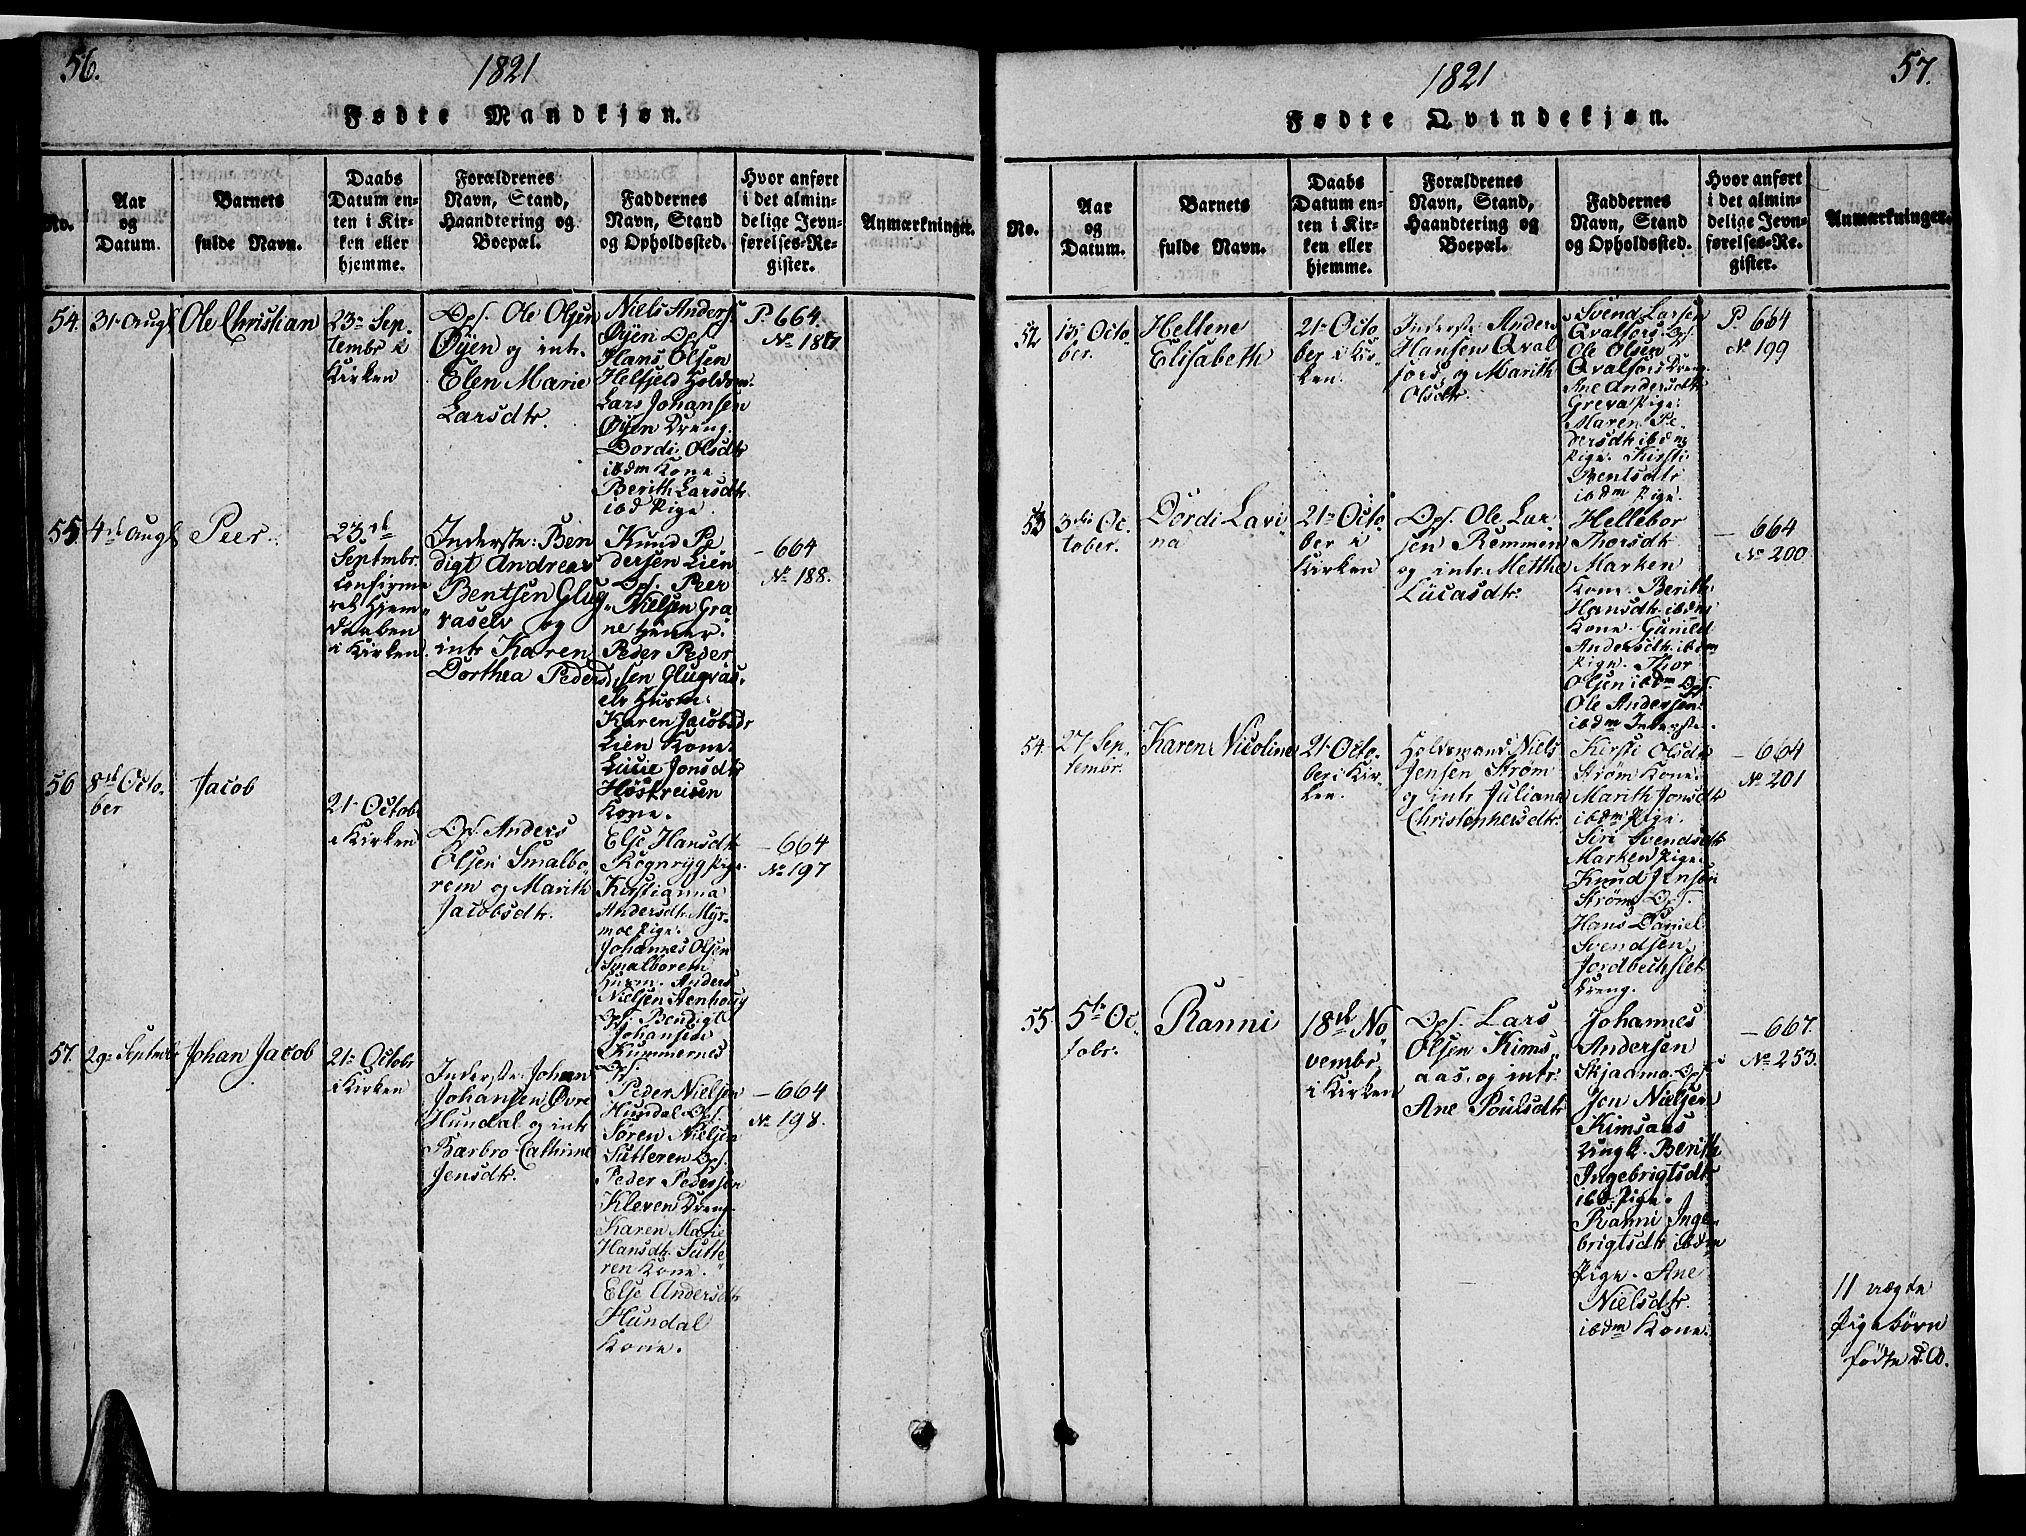 56.
1821
Fødte Mandkjøn.
No.
Aar
og
Datum.
Barnets
fulde Navn.
Daabs
Datum en-
ten i Kir-
ken eller
hjemme.
Forældrenes
Navn, Stand,
Haandtering og
Boepæl.
Faddernes
Navn, Stand
og Opholdssted.
Hvor anført
i det almin-
delige Jevn-
førelses-Re-
gister.
Anmærkninger.
54.
31 Augs
Ole Christian
23de Sep-
tembr i
Kirken
Ops. Ole Olsen
Øyen og intr.
Elen Marie
Larsdtr.
Niels Anders.
Øyen Ops.
Hans Olsen
Helfjeld Holdsm.
Lars Johansen
Øyen Dreng.
Dordi Olsdtr
ibdm Kone.
Berith Larsdtr
ibd Pige.
P. 664.
No 187
55.
4de Augs
Peer.
23de
Septmbr.
Confirme
ret Hjem-
daaben
i Kirken.
Inderste: Ben
digt Andreas
Bentsen Glug
raselv og
intr Karen
Dorthea Pedersd
Knud Pe
dersen Lien
Ops. Peer
Nielsen Gra
ne
Peder Peder
sen Glugvas
elv Husm.
Karen Jacobsdr
Lien Kone.
Lucie Jonsdtr
Kone.
- 664
No 188.
56
8de Octo-
ber
Jacob
21de Octob
i Kirken
Ops. Anders
Olsen Smalbo-
rem og Marith
Jacobsdtr.
Else Hansdtr
Rognryg Pige.
Kirstianna
Andersdtr Myr-
moe Pige.
Johannes Olsen
Smalborem
Husm. Anders
Nielsen Stenhoug
Ops. Bendigt
Johansen
Kummernes
Ops.
- 664
No 197
57.
29de Septmbr
Johan Jacob
21de Octobr
i Kirken
Inderste: Johan
Johansen Øvre
Hundal og intr
Barbro Cathrine
Jensdtr.
Peder Nielsen
Hundal Ops.
Søren Nielsen
Sutteren Ops.
Peder Pedersen
Kleven Dreng
Karen Marie
Hansdtr. Sutte
ren Kone.
Else Andersdtr
Hundal
Kone.
- 664
No 198.
57.
1821
Fødte Qvindekjøn.
No.
Aar
og
Datum.
Barnets
fulde Navn.
Daabs
Datum en-
ten i Kir-
ken eller
hjemme.
Forældrenes
Navn, Stand,
Haandtering og
Boepæl.
Faddernes
Navn, Stand
og Opholdssted.
Hvor anført
i det almin-
delige Jevn-
førelses-Re-
gister.
Anmærkninger.
52
Octo
ber.
Hellene
Elisabeth
21de Octo
ber i Kir-
ken.
Inderste Anders
Hansen Qval
fors, og Marith
Olsdtr.
Svend Larsen
Qvalfors Ops.
Ole Olsen
Qvalfors Dreng
Ane Andersdtr
Greva Pige.
Maren Pe-
dersdtr ibdm
Pige. Kirsti
Bentsdtr
ibdm Pige.
P. 664
No 199
53
3die Oc
tober.
Dordi Lavi
na
21de Octo
ber i
Kirken
Ops. Ole Lar
sen Remmen
og intr. Metthe
Lucasdtr.
Hellebor
Thorsdtr
Marken
Kone. Berith
Hansdtr. ibdm
Kone. Gunild
Andersdtr ibdm
Pige. Thor
Olsen ibdm Ops.
Ole Andersen
ibdm Inderste.
- 664
No 200
54.
27 Sep-
tembr.
Karen Nicoline
21de Octo-
ber i Kir-
ken.
Holdsmand Niels
Jensen Strøm
og intr. Juliana
Christophersdtr.
Kirsti Olsdtr
Strøm Kone.
Marith Jonsdtr
ibdm Pige.
Siri Svendsdtr
Marken Pige.
Knud Jensen
Strøm Ops.
Hans Daniel
Svendsen
Jordbechslet
Dreng.
- 664
No 201
55
5te Oc
tobr.
Ranni
18de No
vembr,
i Kirken
Ops. Lars
Olsen Kims
aas, og intr:
Ane Poulsdtr.
Johannes
Andersen
Skjaama Ops.
Jon Nielsen
Kimsaas
Ungk. Berith
Ingebrigtsdtr
ibd. Pige.
Ranni Inge-
brigtsdtr ibdm
Pige. Ane
Nielsdtr.
ibdm Kone.
- 667.
No 253.
11 uægte
Pigebørn
fødte d. A.